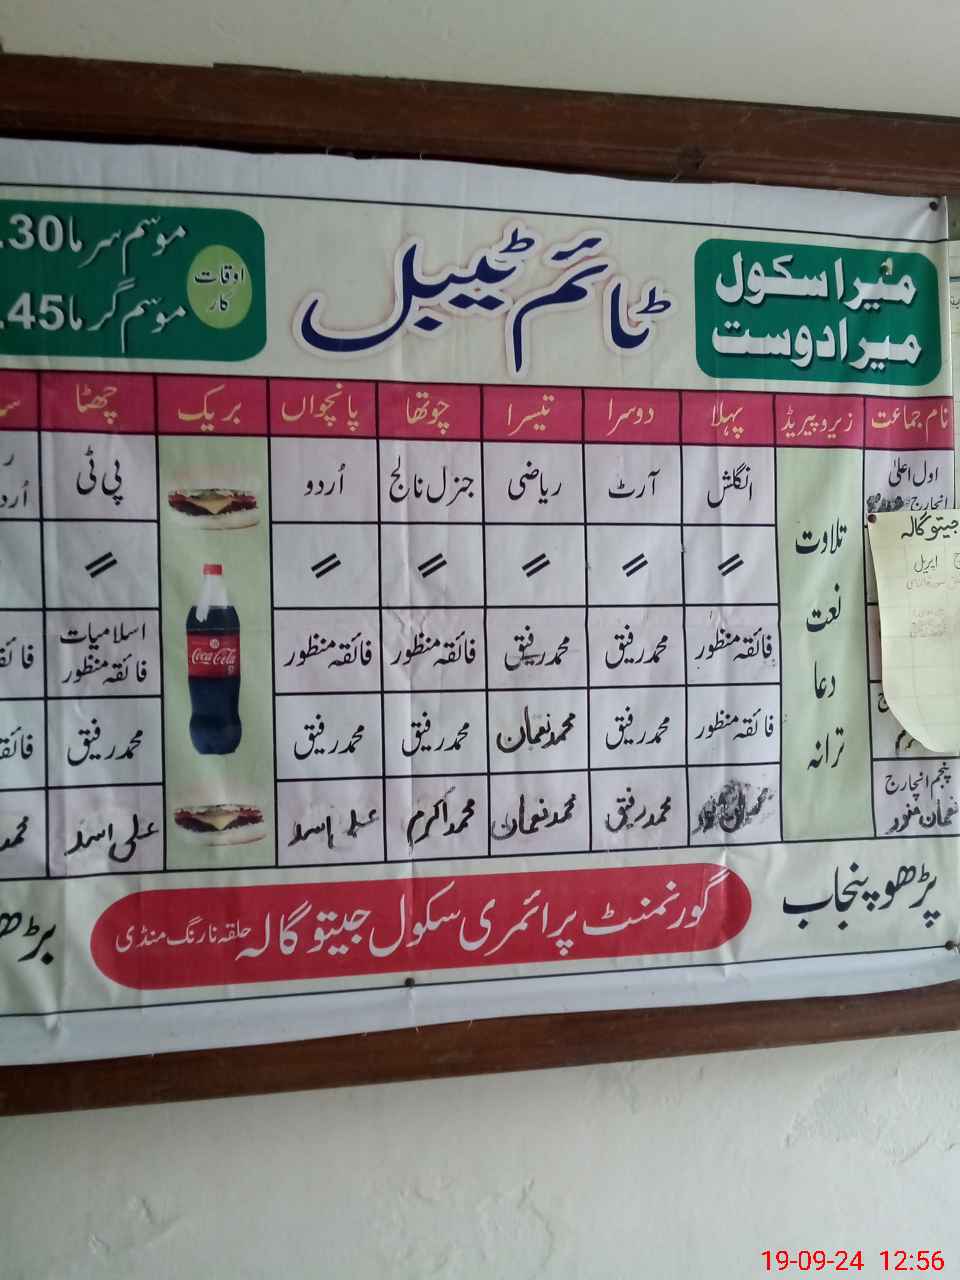 میرا سکول
میرا دوست
ٹائم ٹیبل
اوقات
کار
موسم سرما .30
موسم گرما .45
نام جماعت زیرو پیریڈ پہلا دوسرا تیسرا چوتھا پانچواں بریک چھٹا
اول اعلیٰ
انچارج
انگلش آرٹ ریاضی جنرل نالج اُردو پی ٹی
جیتو گالہ
اپریل
تلاوت
نعت
دعا
ترانہ
〃 〃 〃 〃 〃 〃
فائقہ منظور محمد رفیق محمد رفیق فائقہ منظور فائقہ منظور اسلامیات
فائقہ منظور
فائقہ منظور محمد رفیق محمد نعمان محمد رفیق محمد رفیق محمد رفیق
Coca-Cola
پنجم انچارج
نعمان منور
محمد رفیق محمد نعمان محمد اکرم علی اسد علی اسد
پڑھو پنجاب
گورنمنٹ پرائمری سکول جیتو گالہ حلقہ نارنگ منڈی
19-09-24 12:56